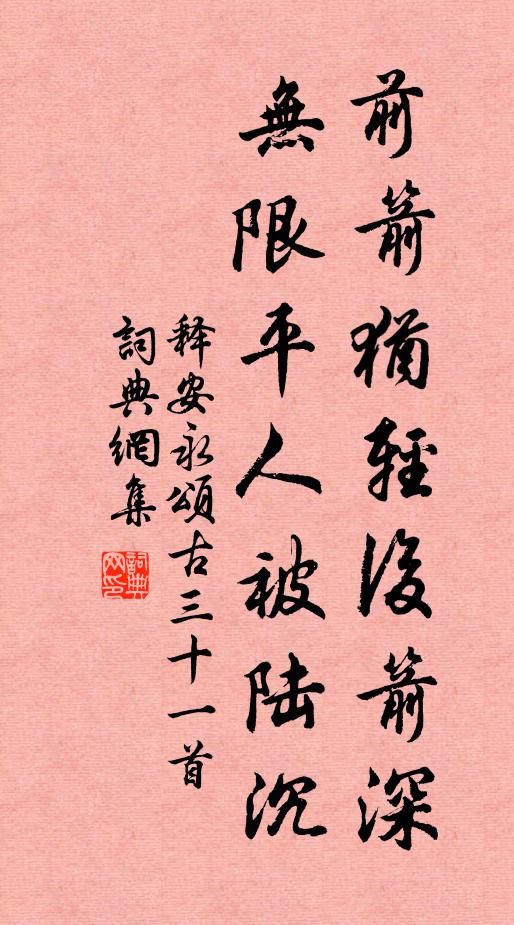 前箭猶輕後箭深
無限平人被陆沉
释安永頌古三十一首
詞典網集
詞典网印